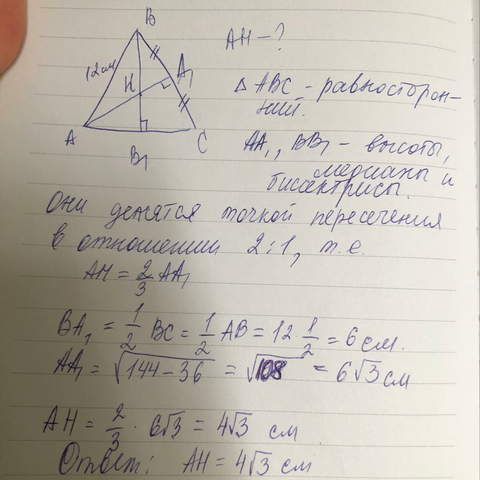 B
AH – ?
12см
A₁
H
Δ ABC – равносторон-
ний.
A
C
B₁
AA₁, BB₁ – высоты,
медианы и
биссектрисы.
Они делятся точкой пересечения
в отношении 2:1, т.е.
AH = 2/3 AA₁
BA₁ = 1/2 BC = 1/2 AB = 12 · 1/2 = 6 см.
AA₁ = √(144 – 36) = √108 = 6√3 см
AH = 2/3 · 6√3 = 4√3 см.
Ответ: AH = 4√3 см